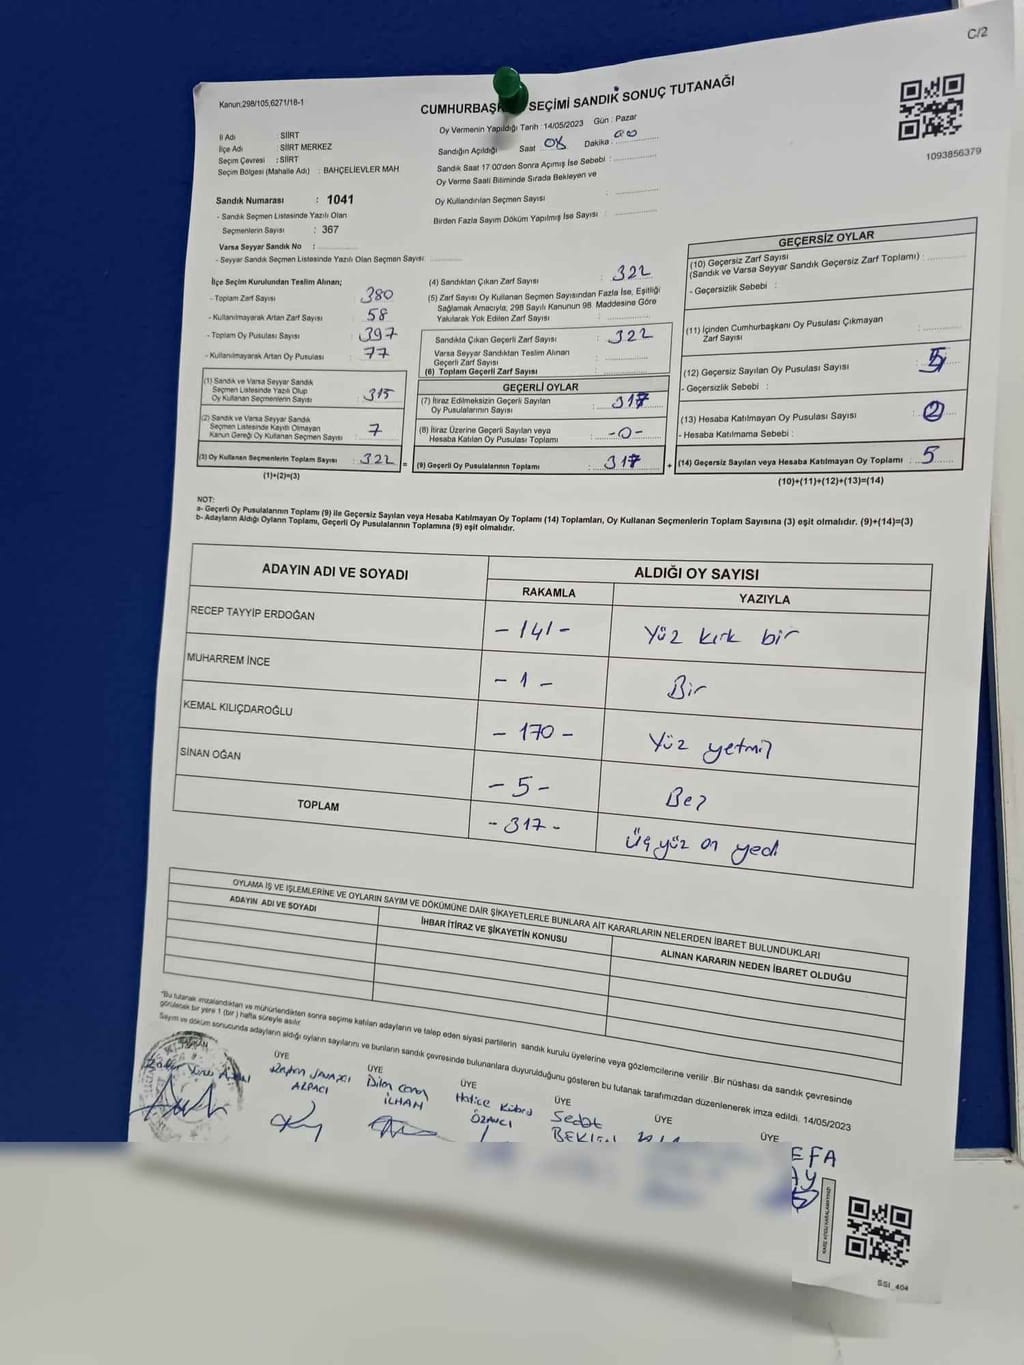 C/2
Kanun;298/105,6271/18-1
CUMHURBAŞK SEÇİMİ SANDIK SONUÇ TUTANAĞI
1093856379
İl Adı : SİİRT
İlçe Adı : SİİRT MERKEZ
Seçim Çevresi : SİİRT
Seçim Bölgesi (Mahalle Adı) : BAHÇELİEVLER MAH
Oy Vermenin Yapıldığı Tarih :14/05/2023 Gün : Pazar
Sandığın Açıldığı Saat 08 Dakika : 00
Sandık Saat 17:00'den Sonra Açımış İse Sebebi :
Oy Verme Saati Bitiminde Sırada Bekleyen ve
Oy Kullandırılan Seçmen Sayısı :
Birden Fazla Sayım Döküm Yapılmış İse Sayısı :
Sandık Numarası : 1041
- Sandık Seçmen Listesinde Yazılı Olan
Seçmenlerin Sayısı : 367
Varsa Seyyar Sandık No :
- Seyyar Sandık Seçmen Listesinde Yazılı Olan Seçmen Sayısı:
İlçe Seçim Kurulundan Teslim Alınan;
- Toplam Zarf Sayısı : 380
- Kullanılmayarak Artan Zarf Sayısı : 58
- Toplam Oy Pusulası Sayısı : 397
- Kullanılmayarak Artan Oy Pusulası : 77
(1) Sandık ve Varsa Seyyar Sandık
Seçmen Listesinde Yazılı Olup
Oy Kullanan Seçmenlerin Sayısı : 315
(2) Sandık ve Varsa Seyyar Sandık
Seçmen Listesinde Kayıtlı Olmayan
Kanun Gereği Oy Kullanan Seçmen Sayısı : 7
(3) Oy Kullanan Seçmenlerin Toplam Sayısı : 322 =
(1)+(2)=(3)
(4) Sandıktan Çıkan Zarf Sayısı : 322
(5) Zarf Sayısı Oy Kullanan Seçmen Sayısından Fazla İse, Eşitliği
Sağlamak Amacıyla; 298 Sayılı Kanunun 98. Maddesine Göre
Yakılarak Yok Edilen Zarf Sayısı :
Sandıkta Çıkan Geçerli Zarf Sayısı : 322
Varsa Seyyar Sandıktan Teslim Alınan
Geçerli Zarf Sayısı :
(6) Toplam Geçerli Zarf Sayısı :
GEÇERLİ OYLAR
(7) İtiraz Edilmeksizin Geçerli Sayılan
Oy Pusulalarının Sayısı : 317
(8) İtiraz Üzerine Geçerli Sayılan veya
Hesaba Katılan Oy Pusulası Toplamı : -0-
(9) Geçerli Oy Pusulalarının Toplamı : 317 +
GEÇERSİZ OYLAR
(10) Geçersiz Zarf Sayısı
(Sandık ve Varsa Seyyar Sandık Geçersiz Zarf Toplamı) :
- Geçersizlik Sebebi :
(11) İçinden Cumhurbaşkanı Oy Pusulası Çıkmayan
Zarf Sayısı :
(12) Geçersiz Sayılan Oy Pusulası Sayısı : 5
- Geçersizlik Sebebi :
(13) Hesaba Katılmayan Oy Pusulası Sayısı : 2
- Hesaba Katılmama Sebebi :
(14) Geçersiz Sayılan veya Hesaba Katılmayan Oy Toplamı : 5
(10)+(11)+(12)+(13)=(14)
NOT:
a- Geçerli Oy Pusulalarının Toplamı (9) ile Geçersiz Sayılan veya Hesaba Katılmayan Oy Toplamı (14) Toplamları, Oy Kullanan Seçmenlerin Toplam Sayısına (3) eşit olmalıdır. (9)+(14)=(3)
b- Adayların Aldığı Oyların Toplamı, Geçerli Oy Pusulalarının Toplamına (9) eşit olmalıdır.
ADAYIN ADI VE SOYADI
ALDIĞI OY SAYISI
RAKAMLA YAZIYLA
RECEP TAYYİP ERDOĞAN - 141 - Yüz kırk bir
MUHARREM İNCE - 1 - Bir
KEMAL KILIÇDAROĞLU - 170 - Yüz yetmiş
SİNAN OĞAN - 5 - Beş
TOPLAM - 317 - Üçyüz on yedi
OYLAMA İŞ VE İŞLEMLERİNE VE OYLARIN SAYIM VE DÖKÜMÜNE DAİR ŞİKAYETLERLE BUNLARA AİT KARARLARIN NELERDEN İBARET BULUNDUKLARI
ADAYIN ADI VE SOYADI
İHBAR İTİRAZ VE ŞİKAYETİN KONUSU
ALINAN KARARIN NEDEN İBARET OLDUĞU
*Bu tutanak imzalandıktan ve mühürlendikten sonra seçime katılan adayların ve talep eden siyasi partilerin sandık kurulu üyelerine veya gözlemcilerine verilir .Bir nüshası da sandık çevresinde
görülecek bir yere 1 (bir ) hafta süreyle asılır.
Sayım ve döküm sonucunda adayların aldığı oyların sayılarını ve bunların sandık çevresinde bulunanlara duyurulduğunu gösteren bu tutanak tarafımızdan düzenlenerek imza edildi. 14/05/2023
ÜYE ÜYE ÜYE ÜYE ÜYE ÜYE
ARPACI
Dilan Canan
İLHAN
Hatice Kübra
ÖZAVCI
Sedat
EFA
AY
SSI_404